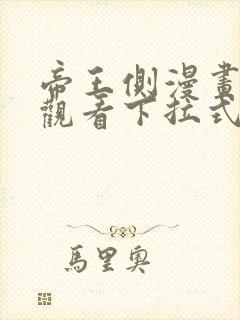 帝王側漫畫
觀看下拉式
馬里奧